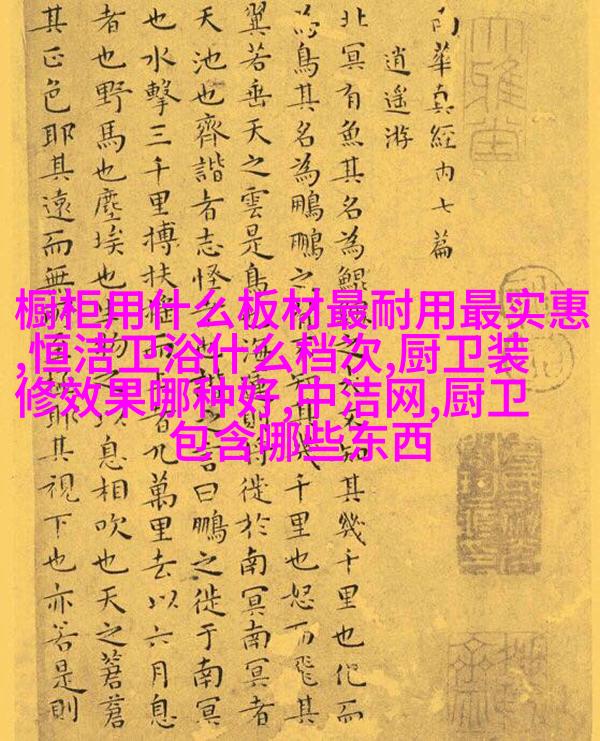 橱柜用什么板材最耐用最实惠
,恒洁卫浴什么档次,厨卫装
修效果哪种好,中洁网,厨卫
包含哪些东西
南華真經內七篇
逍遙游
北冥有魚其名為鯤鯤之大不知其幾千里也化而
為鳥其名為鵬鵬之背不知其幾千里也怒而飛其
翼若垂天之雲是鳥也海運則將徙於南冥南冥者
天池也齊諧者志怪者也諧之言曰鵬之徙于南冥
也水擊三千里搏扶搖而上者九萬里去以六月息
者也野馬也塵埃也生物之以息相吹也天之蒼蒼
其正色耶其遠而無所至極耶其視下也亦若是則